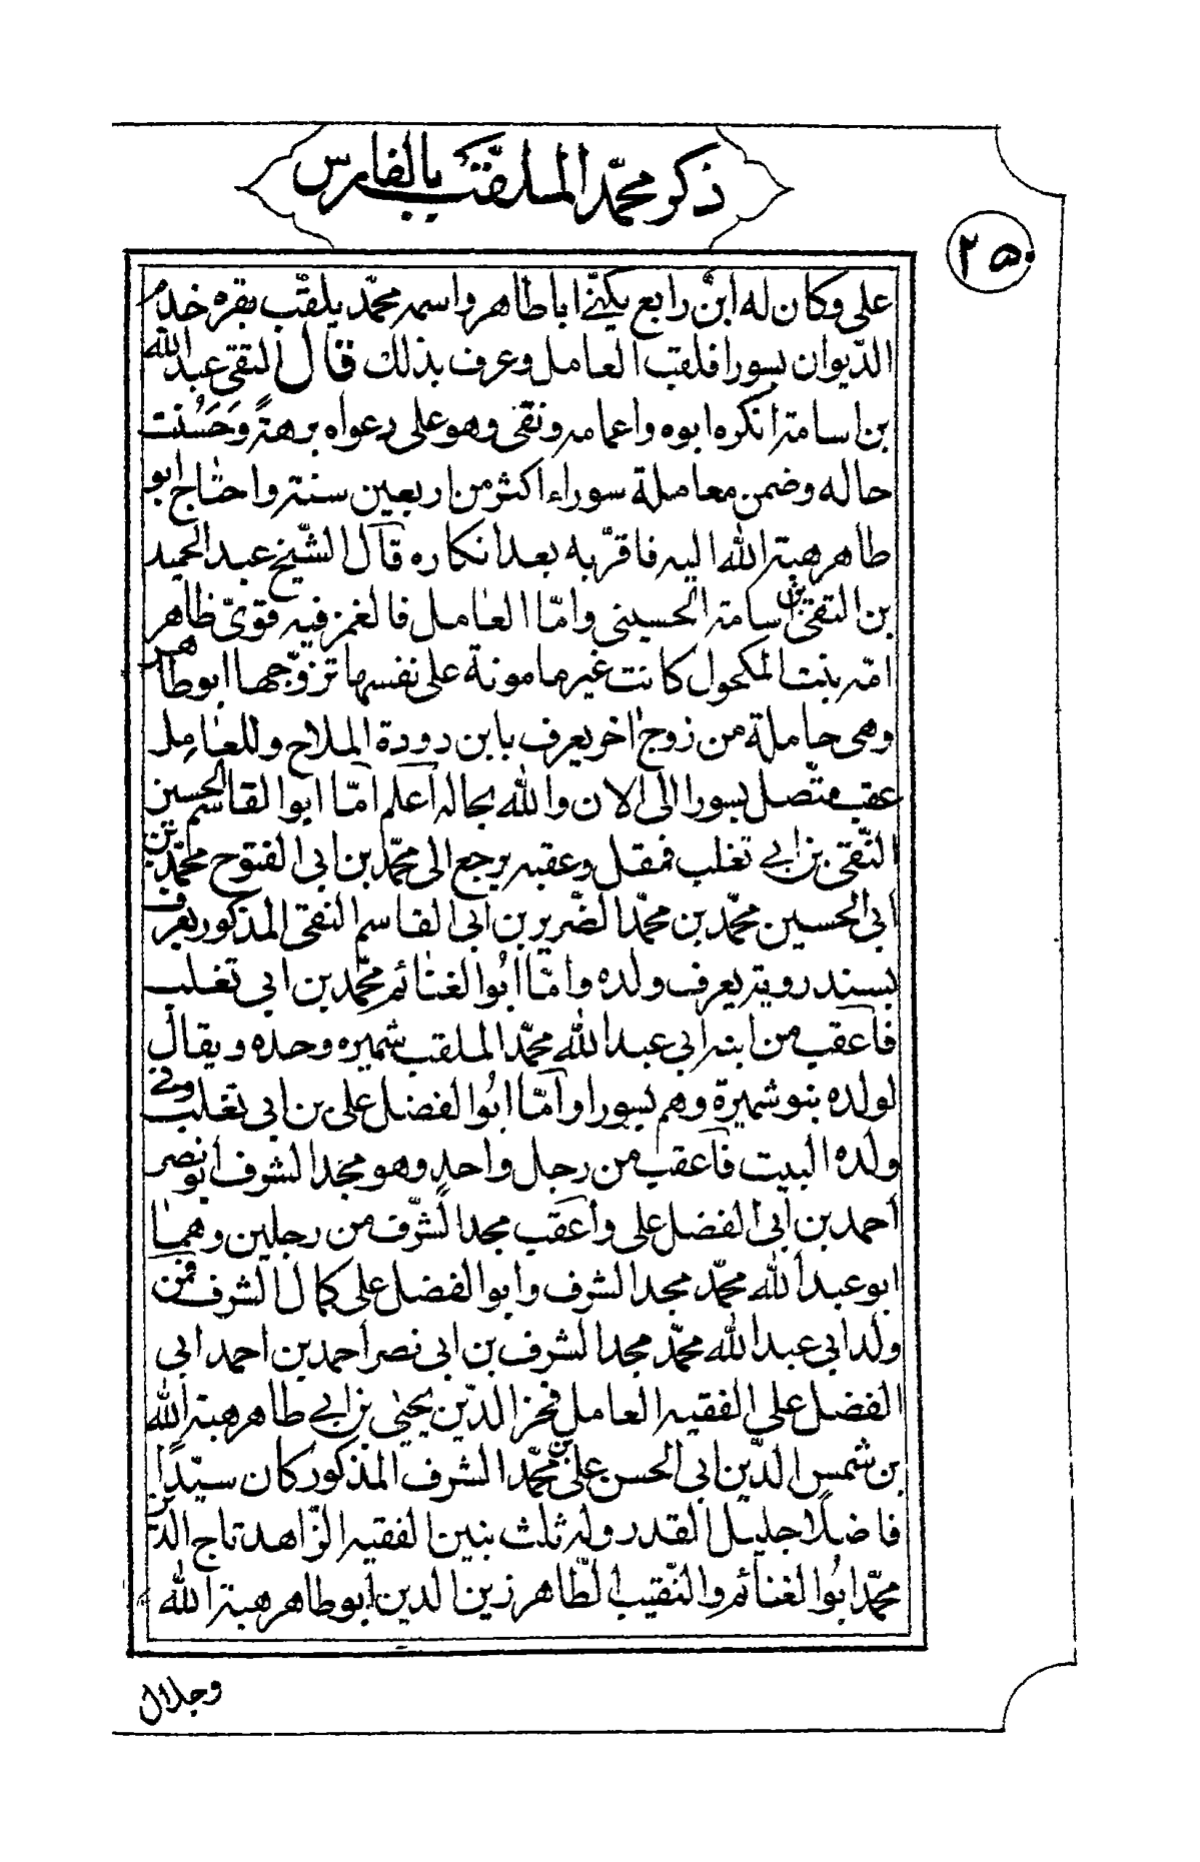 ذكر محمّد الملقّب بالفارس
٢٥٠
على وكان له ابن رابع يكنّى اباطاهر واسمه محمّد يلقّب بقره خدم
الدّيوان بسورا فلقب العامل وعرف بذلك قال النقى عبد الله
بن اسامة انكره ابوه واعمامه ونقى وهو على دعواه برهةً وحَسُنت
حاله وضمن معاملة سوراء اكثر من اربعين سنة واحتاج ابو
طاهر هبة الله اليه فاقرّ به بعد انكاره قال الشّيخ عبد الحميد
بن التقى بن اسامة الحسينى وامّا العامل فالغمز فيه قوىّ ظاهر
امّه بنت المكحول كانت غير مامونة على نفسها تزوّجها ابوطاهر
وهى حاملة من زوج اخر يعرف بابن دودة الملاح وللعامل
عقب متّصل بسورا الى الان والله بحاله اعلم امّا ابوالقاسم الحسين
النّقى بن ابي تغلب فمقل وعقبه يرجع الى محمّد بن ابى الفتوح محمّد بن
ابى الحسين محمّد بن محمّد الضّرير بن ابى القاسم النقى المذكور يعرف
بسندروية يعرف ولده وامّا ابُوالغنائم محمّد بن ابي تغلب
فاعقب من ابنه ابي عبد الله محمّد الملقب شميره وحده ويقال
لولده بنو شميرة وهم بسورا وامّا ابُوالفضل على بن ابي تغلب وفى
ولده البيت فاعقب من رجل واحدٍ وهو مجد الشرف ابو نصر
احمد بن ابى الفضل على واعقب مجد الشّرف من رجلين وهما
ابو عبد الله محمّد مجد الشرف وابوالفضل على كمال الشرف فمن
ولد ابي عبد الله محمّد مجد الشرف بن ابى نصر احمد بن احمد ابى
الفضل على الفقيه العامل فخر الدّين يحيى بن ابي طاهر هبة الله
بن شمس الدّين ابى الحسن على بن محمّد الشرف المذكور كان سيّداً
فاضلًا جليل القدر وله ثلث بنين الفقيه الزّاهد تاج الدّين
محمّد ابُوالغنائم والنّقيب الطّاهر زين الدين ابوطاهر هبة الله
وجلال